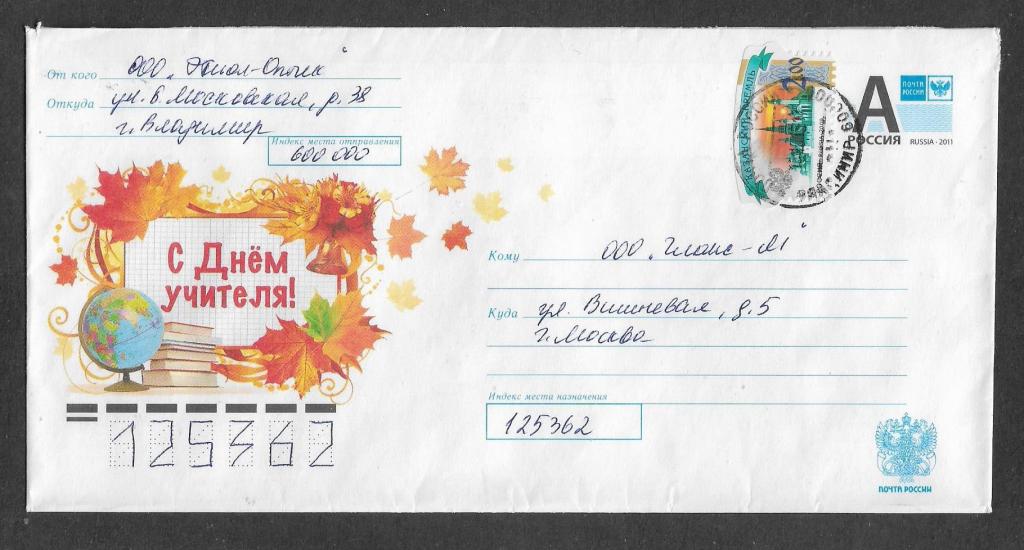 От кого ООО „
Откуда ул. Б. Московская, д. 38
г. Владимир
Индекс места отправления
600 000
С Днём
учителя!
КАЗАНСКИЙ КРЕМЛЬ
200
А
РОССИЯ
ПОЧТА
РОССИИ
RUSSIA · 2011
Кому ООО „Гланс-М“
Куда ул. Вишневая, д. 5
г. Москва
Индекс места назначения
125362
125362
ПОЧТА РОССИИ